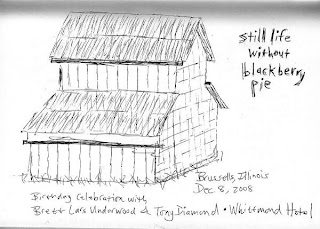 still life
without
blackberry
pie
Brussells, Illinois
Dec 8, 2008
Birthday Celebration with
Brett Lars Underwood & Tony Diamond • Whittmond Hotel